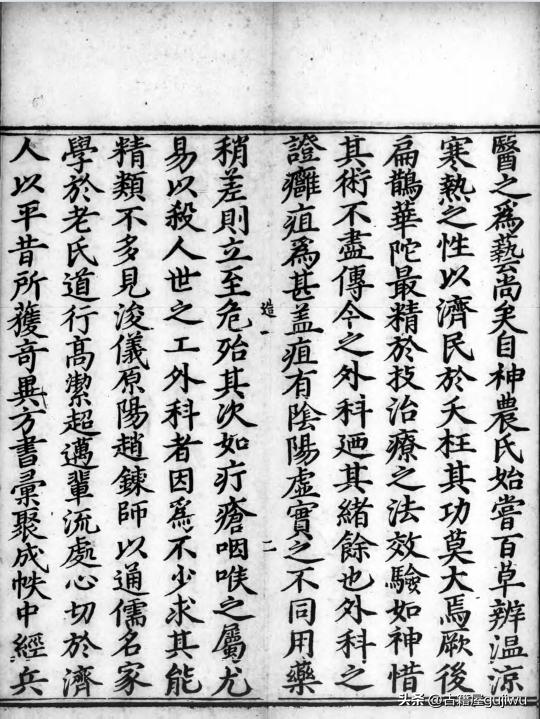 醫之爲藝尚矣自神農氏始嘗百草辨温凉
寒熱之性以濟民於夭枉其功莫大焉厥後
扁鵲華陀最精於技治療之法效驗如神惜
其術不盡傳今之外科廼其緒餘也外科之
證癰疽爲甚盖疽有陰陽虚實之不同用藥
造一
二
稍差則立至危殆其次如疔瘡咽喉之屬尤
易以殺人世之工外科者因爲不少求其能
精類不多見浚儀原陽趙鍊師以通儒名家
學於老氏道行髙潔超邁輩流處心切於濟
人以平昔所獲竒異方書彚聚成帙中經兵
头条@古籍屋gujiwu